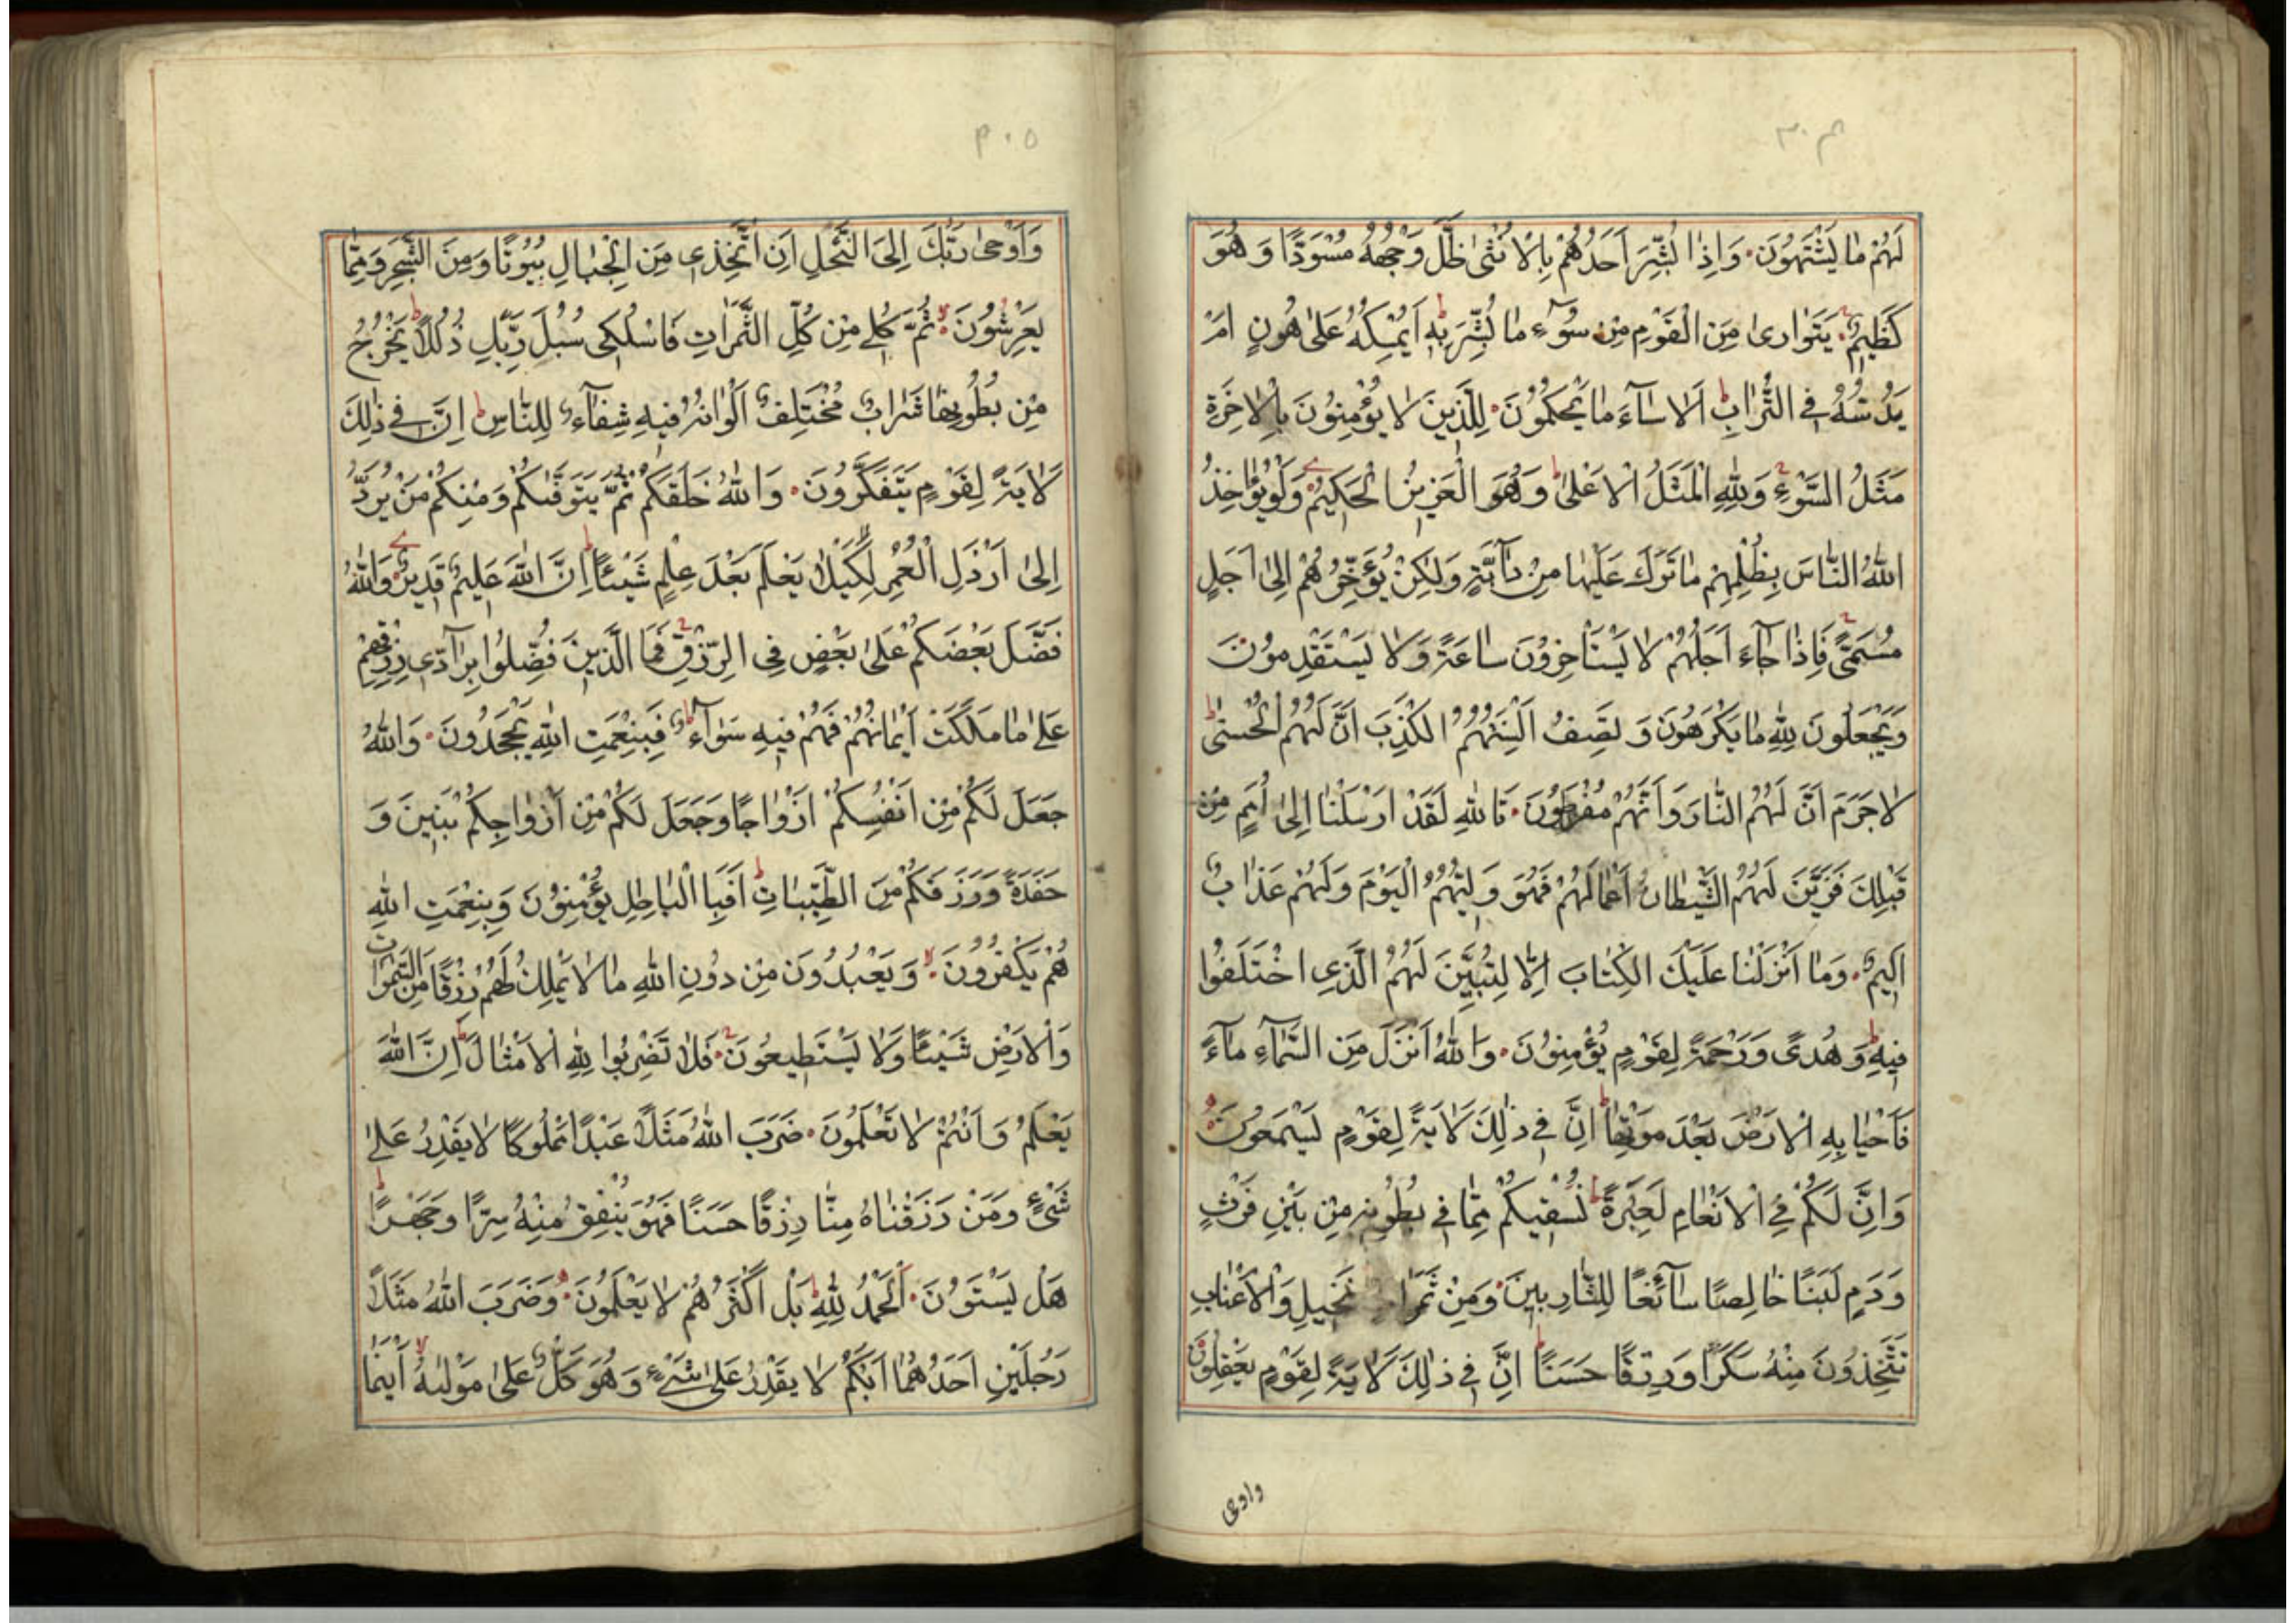 ٣٠٤
لَهُمْ مٰا يَشْتَهُونَ وَاِذٰا بُشِّرَ اَحَدُهُمْ بِالْاُنْثىٰ ظَلَّ وَجْهُهُ مُسْوَدًّا وَهُوَ
كَظِيمٌ يَتَوٰارىٰ مِنَ الْقَوْمِ مِنْ سُوٓءِ مٰا بُشِّرَ بِهِ اَيُمْسِكُهُ عَلىٰ هُونٍ اَمْ
يَدُسُّهُ فِى التُّرٰابِ اَلٰا سٰآءَ مٰا يَحْكُمُونَ لِلَّذِينَ لٰا يُؤْمِنُونَ بِالْاٰخِرَةِ
مَثَلُ السَّوْءِ وَلِلّٰهِ الْمَثَلُ الْاَعْلىٰ وَهُوَ الْعَزِيزُ الْحَكِيمُ وَلَوْ يُؤٰاخِذُ
اللّٰهُ النّٰاسَ بِظُلْمِهِمْ مٰا تَرَكَ عَلَيْهٰا مِنْ دٰآبَّةٍ وَلٰكِنْ يُؤَخِّرُهُمْ اِلىٰ اَجَلٍ
مُسَمًّى فَاِذٰا جٰآءَ اَجَلُهُمْ لٰا يَسْتَأْخِرُونَ سٰاعَةً وَلٰا يَسْتَقْدِمُونَ
وَيَجْعَلُونَ لِلّٰهِ مٰا يَكْرَهُونَ وَتَصِفُ اَلْسِنَتُهُمُ الْكَذِبَ اَنَّ لَهُمُ الْحُسْنىٰ
لٰا جَرَمَ اَنَّ لَهُمُ النّٰارَ وَاَنَّهُمْ مُفْرَطُونَ تَاللّٰهِ لَقَدْ اَرْسَلْنٰا اِلىٰ اُمَمٍ مِنْ
قَبْلِكَ فَزَيَّنَ لَهُمُ الشَّيْطٰانُ اَعْمٰالَهُمْ فَهُوَ وَلِيُّهُمُ الْيَوْمَ وَلَهُمْ عَذٰابٌ
اَلِيمٌ وَمٰا اَنْزَلْنٰا عَلَيْكَ الْكِتٰابَ اِلّٰا لِتُبَيِّنَ لَهُمُ الَّذِى اخْتَلَفُوا
فِيهِ وَهُدًى وَرَحْمَةً لِقَوْمٍ يُؤْمِنُونَ وَاللّٰهُ اَنْزَلَ مِنَ السَّمٰآءِ مٰآءً
فَاَحْيٰا بِهِ الْاَرْضَ بَعْدَ مَوْتِهٰا اِنَّ فِى ذٰلِكَ لَاٰيَةً لِقَوْمٍ يَسْمَعُونَ
وَاِنَّ لَكُمْ فِى الْاَنْعٰامِ لَعِبْرَةً نُسْقِيكُمْ مِمّٰا فِى بُطُونِهِ مِنْ بَيْنِ فَرْثٍ
وَدَمٍ لَبَنًا خٰالِصًا سٰآئِغًا لِلشّٰارِبِينَ وَمِنْ نَخِيلِ وَالْاَعْنٰابِ
تَتَّخِذُونَ مِنْهُ سَكَرًا وَرِزْقًا حَسَنًا اِنَّ فِى ذٰلِكَ لَاٰيَةً لِقَوْمٍ يَعْقِلُونَ
واوحى
٣٠٥
وَاَوْحىٰ رَبُّكَ اِلَى النَّحْلِ اَنِ اتَّخِذِى مِنَ الْجِبٰالِ بُيُوتًا وَمِنَ الشَّجَرِ وَمِمّٰا
يَعْرِشُونَ ثُمَّ كُلِى مِنْ كُلِّ الثَّمَرٰاتِ فَاسْلُكِى سُبُلَ رَبِّكِ ذُلُلًا يَخْرُجُ
مِنْ بُطُونِهٰا شَرٰابٌ مُخْتَلِفٌ اَلْوٰانُهُ فِيهِ شِفٰآءٌ لِلنّٰاسِ اِنَّ فِى ذٰلِكَ
لَاٰيَةً لِقَوْمٍ يَتَفَكَّرُونَ وَاللّٰهُ خَلَقَكُمْ ثُمَّ يَتَوَفّٰىكُمْ وَمِنْكُمْ مَنْ يُرَدُّ
اِلىٰ اَرْذَلِ الْعُمُرِ لِكَيْلٰا يَعْلَمَ بَعْدَ عِلْمٍ شَيْئًا اِنَّ اللّٰهَ عَلِيمٌ قَدِيرٌ وَاللّٰهُ
فَضَّلَ بَعْضَكُمْ عَلىٰ بَعْضٍ فِى الرِّزْقِ فَمَا الَّذِينَ فُضِّلُوا بِرٰآدِّى رِزْقِهِمْ
عَلىٰ مٰا مَلَكَتْ اَيْمٰانُهُمْ فَهُمْ فِيهِ سَوٰآءٌ فَبِنِعْمَتِ اللّٰهِ يَجْحَدُونَ وَاللّٰهُ
جَعَلَ لَكُمْ مِنْ اَنْفُسِكُمْ اَزْوٰاجًا وَجَعَلَ لَكُمْ مِنْ اَزْوٰاجِكُمْ بَنِينَ وَ
حَفَدَةً وَرَزَقَكُمْ مِنَ الطَّيِّبٰاتِ اَفَبِالْبٰاطِلِ يُؤْمِنُونَ وَبِنِعْمَتِ اللّٰهِ
هُمْ يَكْفُرُونَ وَيَعْبُدُونَ مِنْ دُونِ اللّٰهِ مٰا لٰا يَمْلِكُ لَهُمْ رِزْقًا مِنَ السَّمٰوٰاتِ
وَالْاَرْضِ شَيْئًا وَلٰا يَسْتَطِيعُونَ فَلٰا تَضْرِبُوا لِلّٰهِ الْاَمْثٰالَ اِنَّ اللّٰهَ
يَعْلَمُ وَاَنْتُمْ لٰا تَعْلَمُونَ ضَرَبَ اللّٰهُ مَثَلًا عَبْدًا مَمْلُوكًا لٰا يَقْدِرُ عَلىٰ
شَىْءٍ وَمَنْ رَزَقْنٰاهُ مِنّٰا رِزْقًا حَسَنًا فَهُوَ يُنْفِقُ مِنْهُ سِرًّا وَجَهْرًا
هَلْ يَسْتَوُونَ اَلْحَمْدُ لِلّٰهِ بَلْ اَكْثَرُهُمْ لٰا يَعْلَمُونَ وَضَرَبَ اللّٰهُ مَثَلًا
رَجُلَيْنِ اَحَدُهُمٰا اَبْكَمُ لٰا يَقْدِرُ عَلىٰ شَىْءٍ وَهُوَ كَلٌّ عَلىٰ مَوْلٰىهُ اَيْنَمٰا